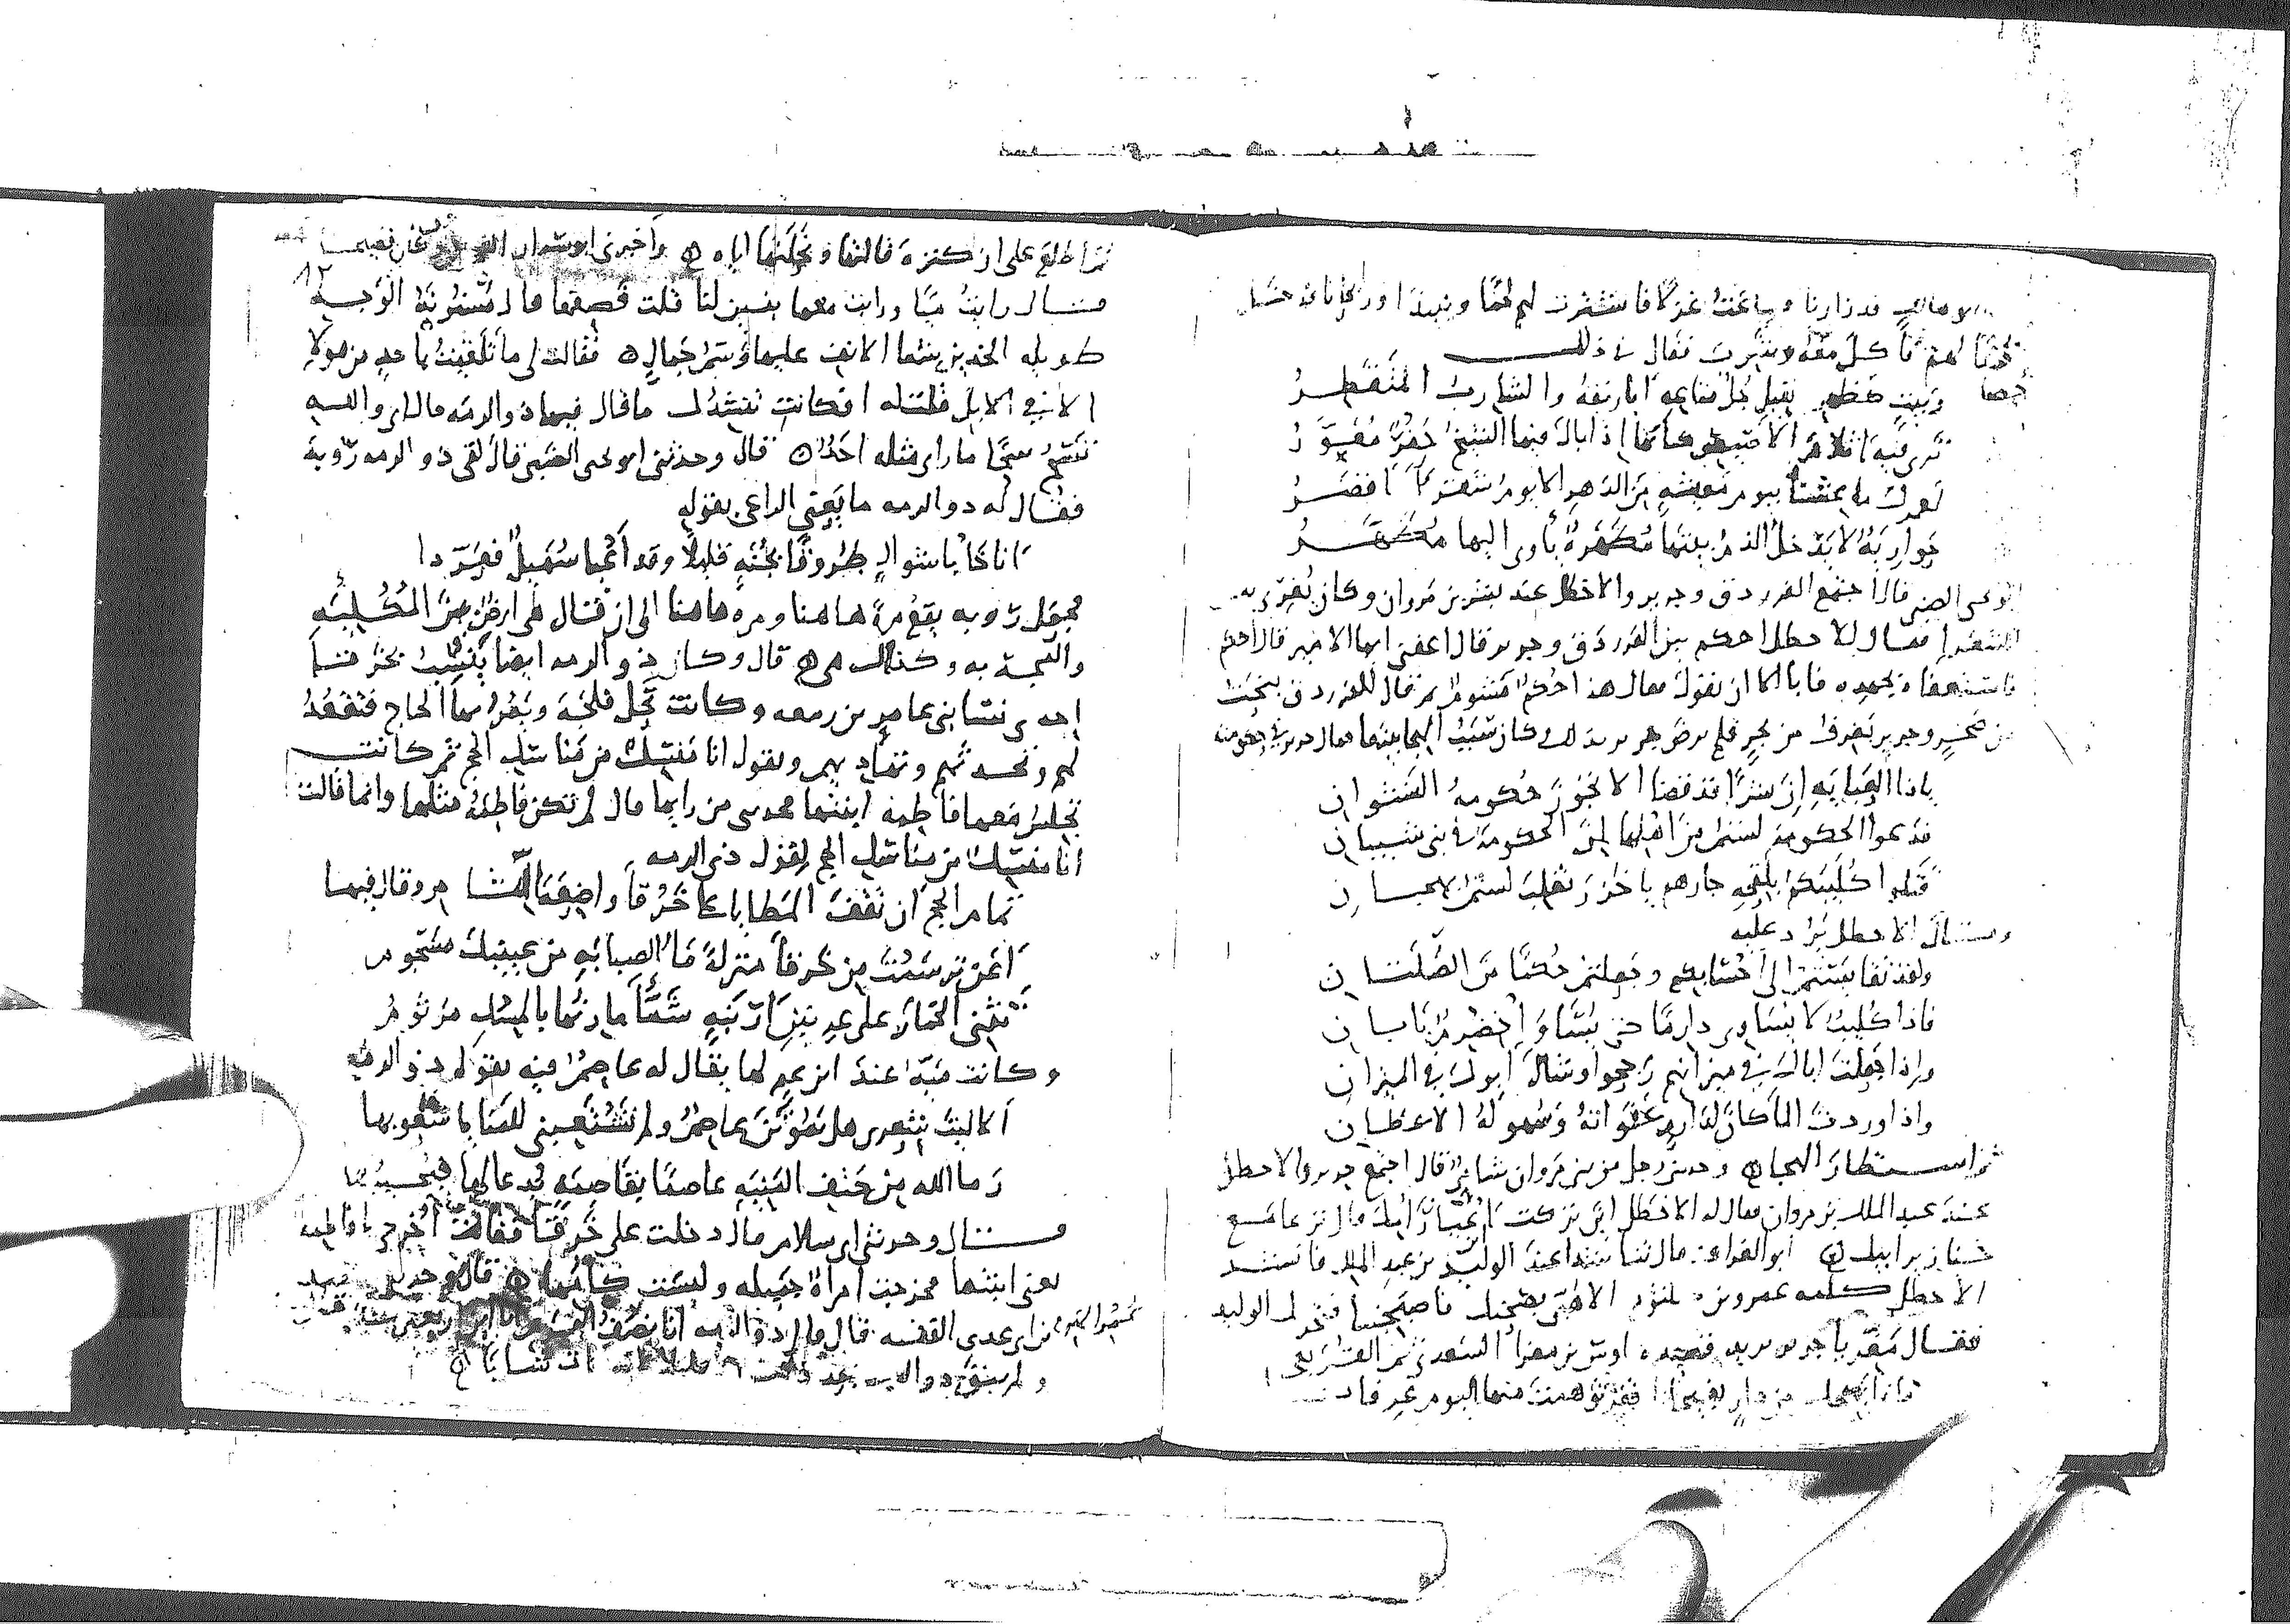 الاهاب قد زارنا وساغت غزلا فاستقرت لهم لحما ونبيذا وريحانا فدخل
لهم فاكل معه وشرب فقال في ذلك
وبيت كظهر الفيل جل متاعه اباريقه والشارب المتقطر
ترى فيه اثلام الاصيص كأنها اذا بال فيها الشيخ جفر معور
لعمرك ما عشنا بيوم معيشة من الدهر الا يوم شقرا اقصر
حوارية لا يدخل الذم بيتها مطهرة يأوي اليها مطهر
ابو يحيى الضبي قال اجتمع الفرزدق وجرير والاخطل عند بشر بن مروان وكان يغري بين
الشعرا فقال للاخطل احكم بين الفرزدق وجرير فقال اعفني ايها الامير قال احكم
فاستعفاه بجهده فابا الا ان يقول فقال هذا حكم مشوم ثم قال الفرزدق ينحت
من صخر وجرير يغرف من بحر فلم يرض جرير بذلك وكان سبب الهجا بينهما فقال جرير في حكومته
ياذا العباية ان بشرا قد قضا الا تجوز حكومة النشوان
فدعوا الحكومة لستم من اهلها ان الحكومة في بني شيبان
قتلوا كليبكم بلقحة جارهم يا خزر تغلب لستم بهجان
وقال الاخطل يرد عليه
ولقد تقايستم الى احسابكم وجعلتم حكما من السلطان
فاذا كليب لا تساوي دارما حتى يساوي حضرم بابان
واذا جعلت اباك في ميزانهم رجحوا وشال ابوك في الميزان
واذا وردت الما كان لدارم عفواته وسهولة الاعطان
ثم استطار الهجا وحدثني رجل من بني مروان شامي قال اجتمع جرير والاخطل
عند عبد الملك بن مروان فقال له الاخطل اين تركت اتن ابيك قال ترعا مع
خنازير ابيك ابو الغراف قال تناشدا عند الوليد بن عبد الملك فانشد
الاخطل كلمة عمرو بن كلثوم الا هبي بصحنك فاصبحينا فتحرك الوليد
فقال مغر يا جرير يريد قصيدة اوس بن مغرا السعدي ثم القريعي
ماذا يهيجك من دار بفيحانا قفر توهمت منها اليوم عرفانا
ثم اطلع على ان كنزة قالتها ونحلتها اياه وأخبرني ابو سوار الغنوي وكان فصيحا
قال رايت ميا ورايت معها بنين لها قلت فصفها قال مسنونة الوجه
طويلة الخد بينها الانف عليها وسم جمال فقالت لي ما تلقيت باحد من هولا
الا في الابل قلت له افكانت تنشدك ما قال فيها ذو الرمة قال اي والله
تسح سحا ما راى مثله احد قال وحدثني ابو يحيى الضبي قال لقي ذو الرمة رؤبة
فقال له ذو الرمة ما يعني الراعي بقوله
اناخا باشوال طروقا بخبة قليلا وقد أعيا سهيل فعردا
فجعل رؤبة يقع مرة هاهنا ومرة هاهنا الى ان قال هي ارض بين المكلئة
والمجدبة وكذلك هي قال وكان ذو الرمة ايضا يشبب بخرقا
احدى نسا بني عامر بن ربيعة وكانت تحل فلجة ويمر بها الحاج فتقعد
لهم وتحدثهم وتهاديهم وتقول انا منسك من مناسك الحج ثم كانت
تجلس معها فاطمة ابنتها فحدثني من رآهما قال لم تكن فاطمة مثلها وانما قالت
انا منسك من مناسك الحج لقول ذي الرمة
تمام الحج ان تقف المطايا على خرقا واضعة اللثام وقال فيها
أعن ترسمت من خرقا منزلة ما الصبابة من عينيك مسجوم
تثني الخمار على عرنين ارنبة شما مارنها بالمسك مرثوم
وكانت مية عند ابن عم لها يقال له عاصم وفيه يقول ذو الرمة
الا ليت شعري هل يموتن عاصم ولم تشتعبني للمنايا شعوبها
رما الله من حتف المنية عاصما بقاصمة يدعا لها فيجيبها
قال وحدثني ابن سلام قال دخلت على خرقا فقالت أخرجي يا فاطمة
يعني ابنتها فخرجت امراة جميلة وليست كأمها
بن ابي عدي القفه قال قال ذو الرمة انا نصف الهرم انا ابن اربعين سنة
ولم يبق ذو الرمة بعد ذلك الا قليلا مات شابا
١٢